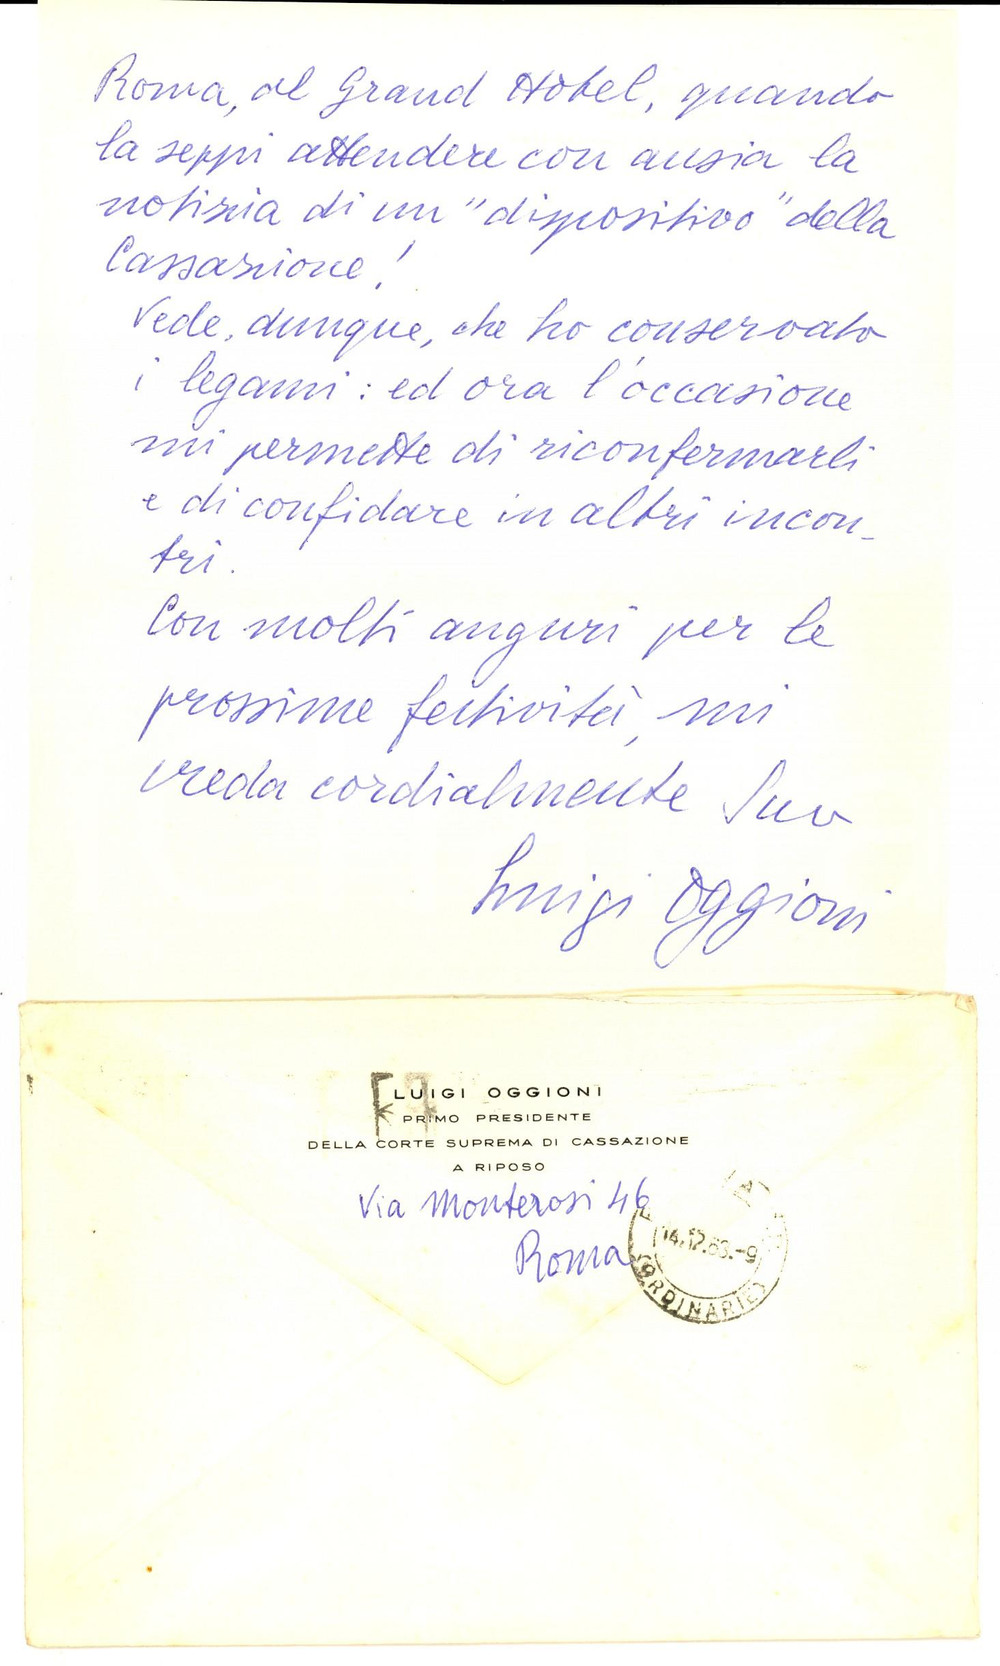 Roma, al Grand Hotel, quando
la seppi attendere con ansia la
notizia di un "dispositivo" della
Cassazione!
Vede, dunque, che ho conservato
i legami: ed ora l'occasione
mi permette di riconfermarli
e di confidare in altri incon-
tri.
Con molti auguri per le
prossime festività, mi
creda cordialmente Suo
Luigi Oggioni
LUIGI OGGIONI
PRIMO PRESIDENTE
DELLA CORTE SUPREMA DI CASSAZIONE
A RIPOSO
Via Monterosi 46
Roma
14.12.83.-9
(ORDINARIE)